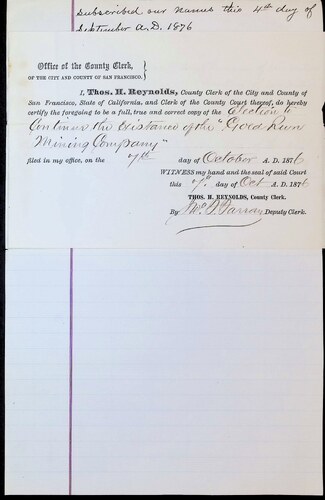 subscribed our names this 4th day of
September A.D. 1876
Office of the County Clerk,
OF THE CITY AND COUNTY OF SAN FRANCISCO.
I, Thos. H. Reynolds, County Clerk of the City and County of
San Francisco, State of California, and Clerk of the County Court thereof, do hereby
certify the foregoing to be a full, true and correct copy of the Election to
Continue the Existance of the "Gold Run
Mining Company"
filed in my office, on the 7th day of October A. D. 1876
WITNESS my hand and the seal of said Court
this 7th day of Oct A. D. 1876
THOS. H. REYNOLDS, County Clerk.
By Deputy Clerk.